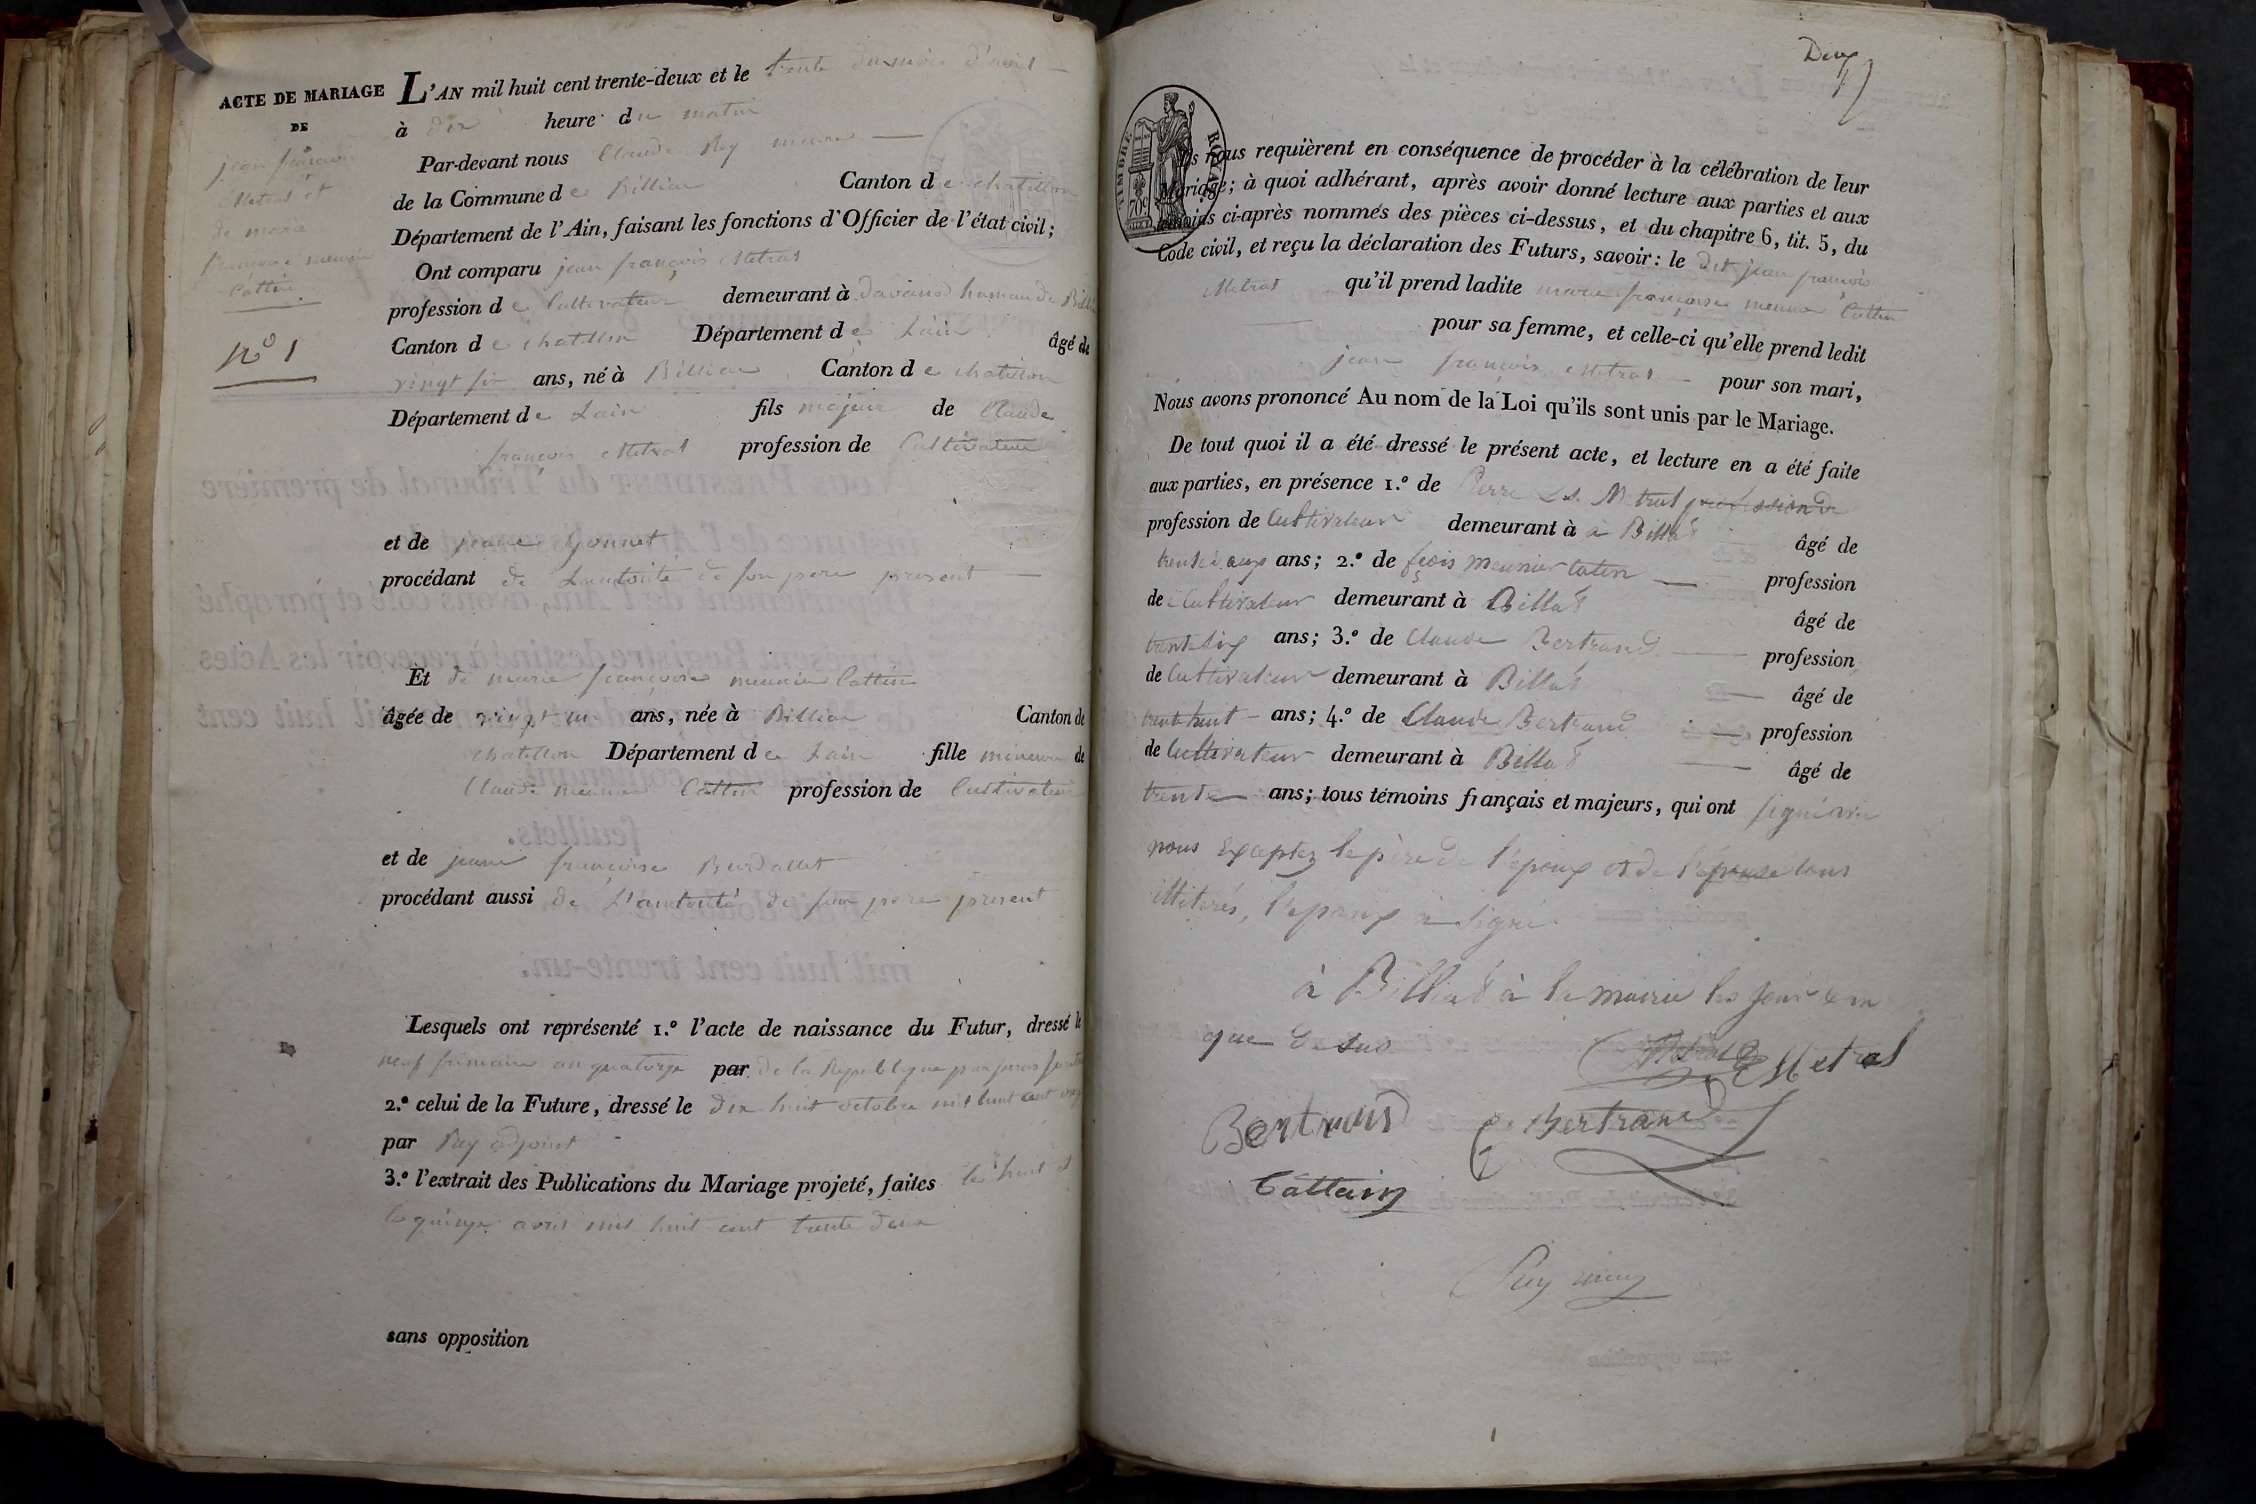 ACTE DE MARIAGE
DE
jean françois
Metral et
de marie
françoise meunier
Cattin
N.º 1
L'AN mil huit cent trente-deux et le trente du mois d'avril
à dix heure du matin
Par-devant nous Claude Rey maire
de la Commune de Billiat Canton de chatillon
Département de l'Ain, faisant les fonctions d'Officier de l'état civil;
Ont comparu jean françois Metral
profession de Cultivateur demeurant à davanod hamau de
Canton de chatillon Département de Lain âgé de
vingt six ans, né à Billiat Canton de chatillon
Département de Lain fils majeur de Claude
françois Metral profession de Cultivateur
et de jeanne Gonnet
procédant de Lautorité de son pere present
Et de marie françoise meunier Cattin
âgée de vingt un ans, née à Billiat Canton de
chatillon Département de Lain fille mineure de
Claude meunier Cattin profession de Cultivateur
et de jeanne françoise Burdallet
procédant aussi de L'autorité de son pere present
Lesquels ont représenté 1.º l'acte de naissance du Futur, dressé le
neuf frimaire an quatorze par de la Republique
2.º celui de la Future, dressé le dix huit octobre mil huit cent
par Rey adjoint
3.º l'extrait des Publications du Mariage projeté, faites le huit et
le quinze avril mil huit cent trente deux
sans opposition
Deux
TIMBRE ROYAL
70c
Ils nous requièrent en conséquence de procéder à la célébration de leur
Mariage; à quoi adhérant, après avoir donné lecture aux parties et aux
témoins ci-après nommés des pièces ci-dessus, et du chapitre 6, tit. 5, du
Code civil, et reçu la déclaration des Futurs, savoir: le dit jean françois
Metral qu'il prend ladite marie françoise meunier Cattin
pour sa femme, et celle-ci qu'elle prend ledit
jean françois Metral pour son mari,
Nous avons prononcé Au nom de la Loi qu'ils sont unis par le Mariage.
De tout quoi il a été dressé le présent acte, et lecture en a été faite
aux parties, en présence 1.º de Pierre Metral profession de
profession de Cultivateur demeurant à à Billiat âgé de
ans; 2.º de fçois meunier catin profession
de Cultivateur demeurant à Billiat âgé de
ans; 3.º de Claude Bertrand profession
de Cultivateur demeurant à Billiat âgé de
trente huit ans; 4.º de Claude Bertrand profession
de Cultivateur demeurant à Billiat âgé de
trente ans; tous témoins français et majeurs, qui ont signé avec
nous Exceptez le père de l'epoux et de l'epouse tous
illiterés, l'epoux a signé
à Billiat à la mairie les jour & an
que de sus
Metral
Bertrand C. Bertrand
Cattain
Rey maire